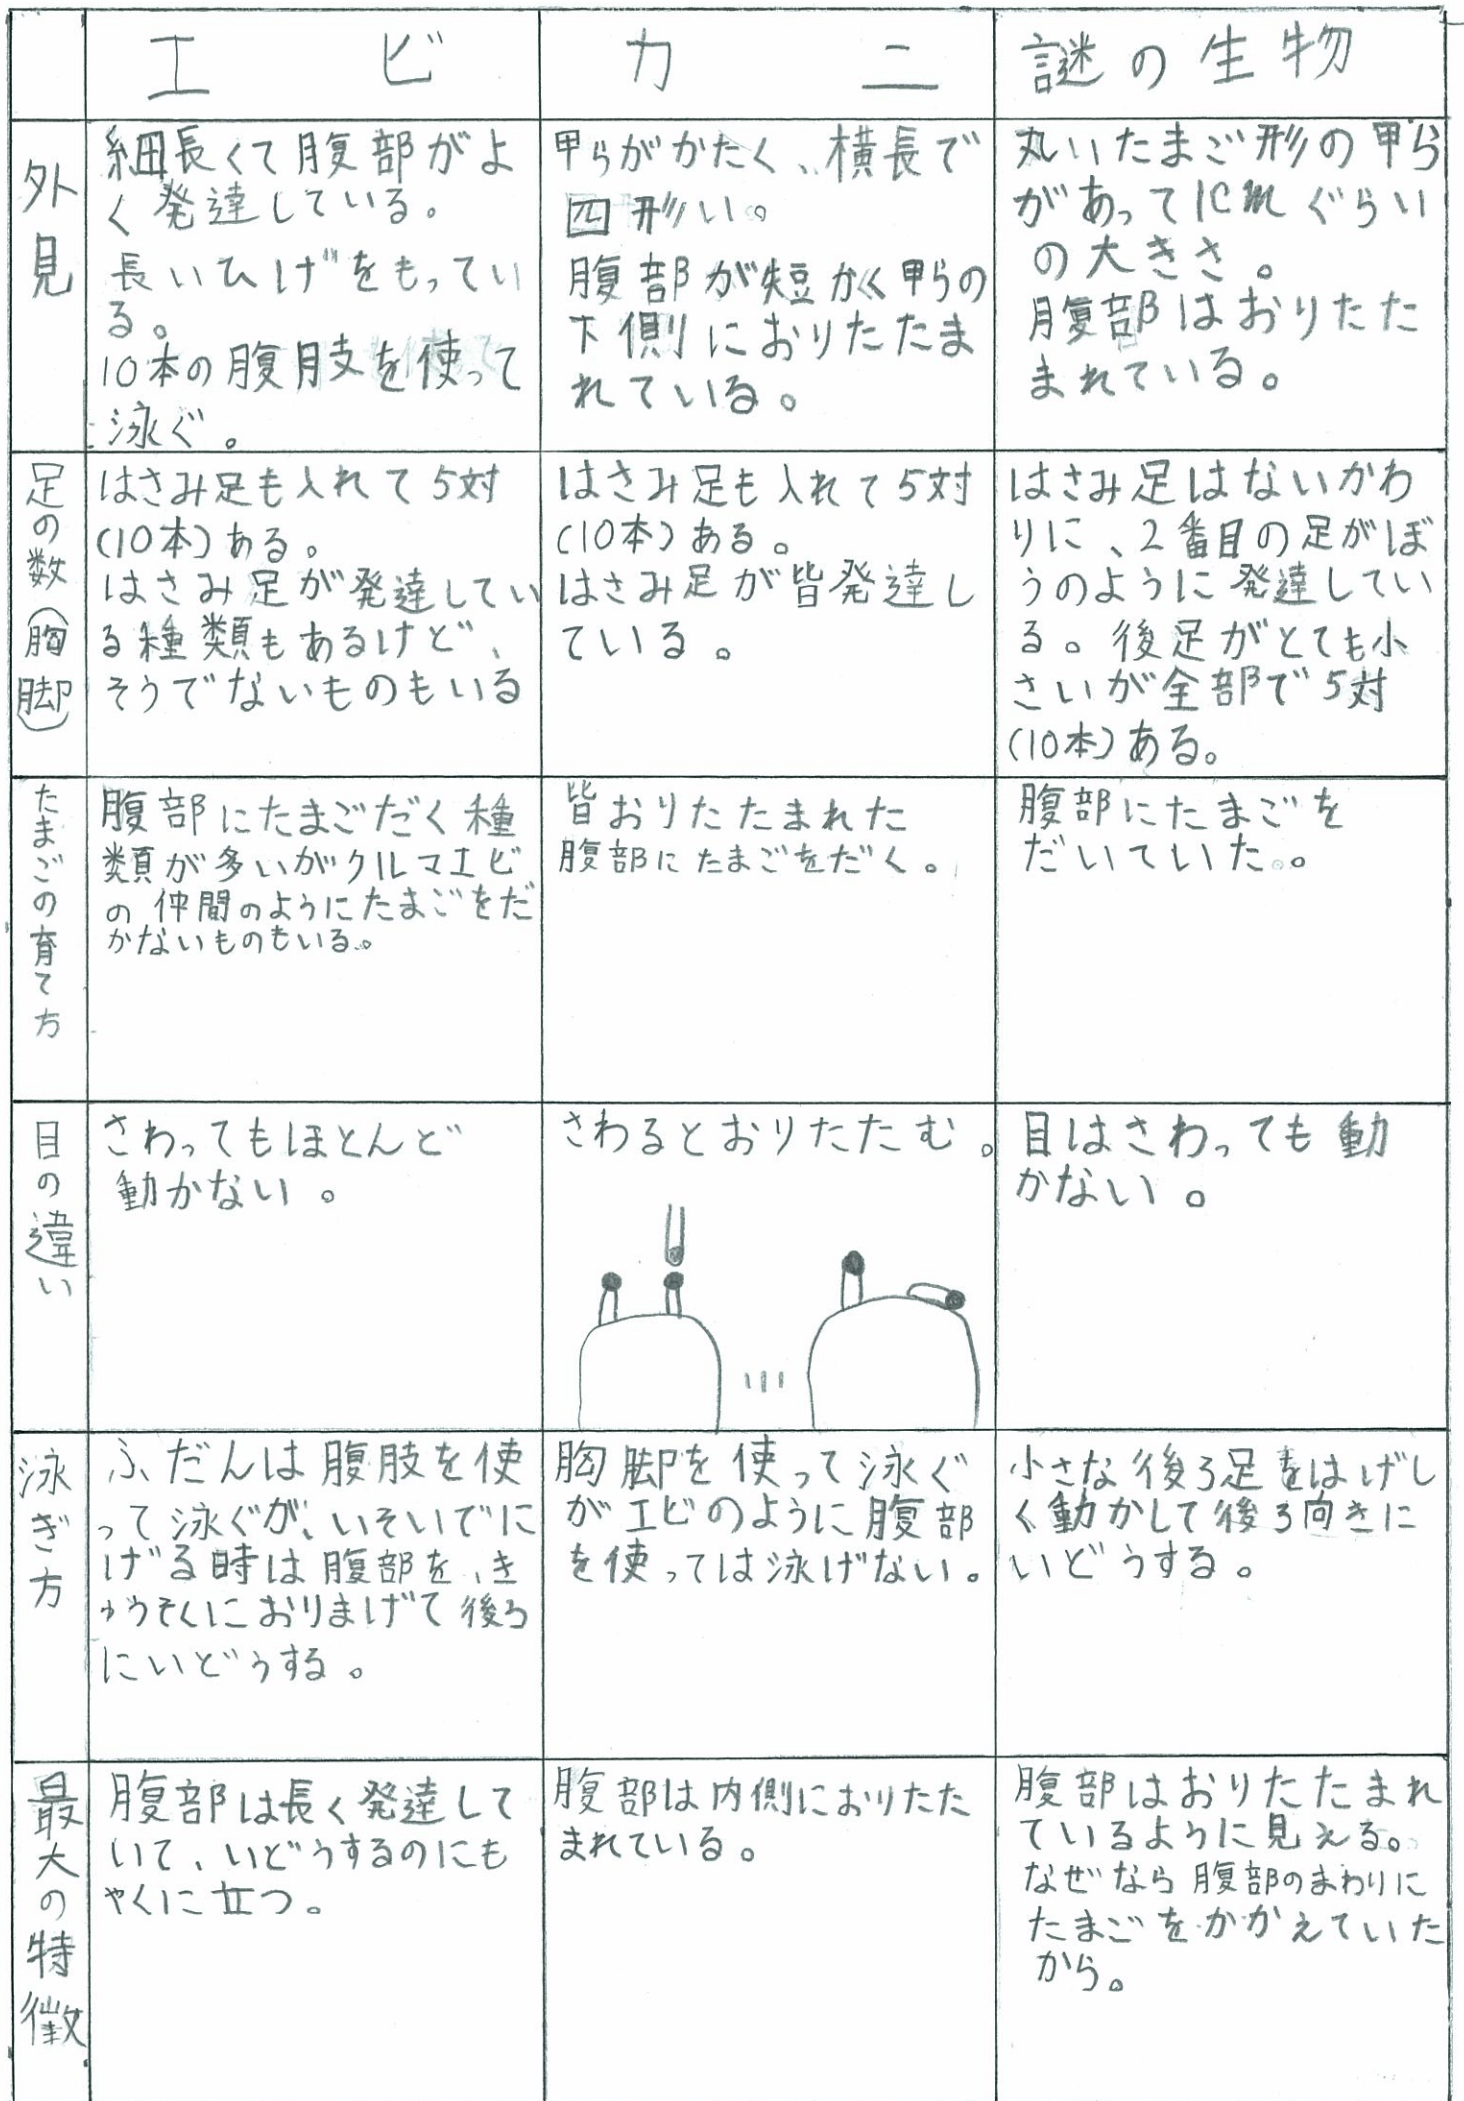 エビ
カニ
謎の生物
外見
細長くて腹部がよ
く発達している。
長いひげをもってい
る。
10本の腹肢を使って
泳ぐ。
甲らがかたく、横長で
四形い。
腹部が短かく甲らの
下側におりたたま
れている。
丸いたまご形の甲ら
があって1cmぐらい
の大きさ。
腹部はおりたた
まれている。
足の数(胸脚)
はさみ足も入れて5対
(10本)ある。
はさみ足が発達してい
る種類もあるけど、
そうでないものもいる
はさみ足も入れて5対
(10本)ある。
はさみ足が皆発達し
ている。
はさみ足はないかわ
りに、2番目の足がぼ
うのように発達してい
る。後足がとても小
さいが全部で5対
(10本)ある。
たまごの育て方
腹部にたまごだく種
類が多いがクルマエビ
の仲間のようにたまごをだ
かないものもいる。
皆おりたたまれた
腹部にたまごをだく。
腹部にたまごを
だいていた。
目の違い
さわってもほとんど
動かない。
さわるとおりたたむ。
目はさわっても動
かない。
泳ぎ方
ふだんは腹肢を使
って泳ぐが、いそいでに
げる時は腹部を、き
ゅうそくにおりまげて後ろ
にいどうする。
胸脚を使って泳ぐ
がエビのように腹部
を使っては泳げない。
小さな後ろ足をはげし
く動かして後ろ向きに
いどうする。
最大の特徴
腹部は長く発達して
いて、いどうするのにも
やくに立つ。
腹部は内側におりたた
まれている。
腹部はおりたたまれ
ているように見える。
なぜなら腹部のまわりに
たまごをかかえていた
から。